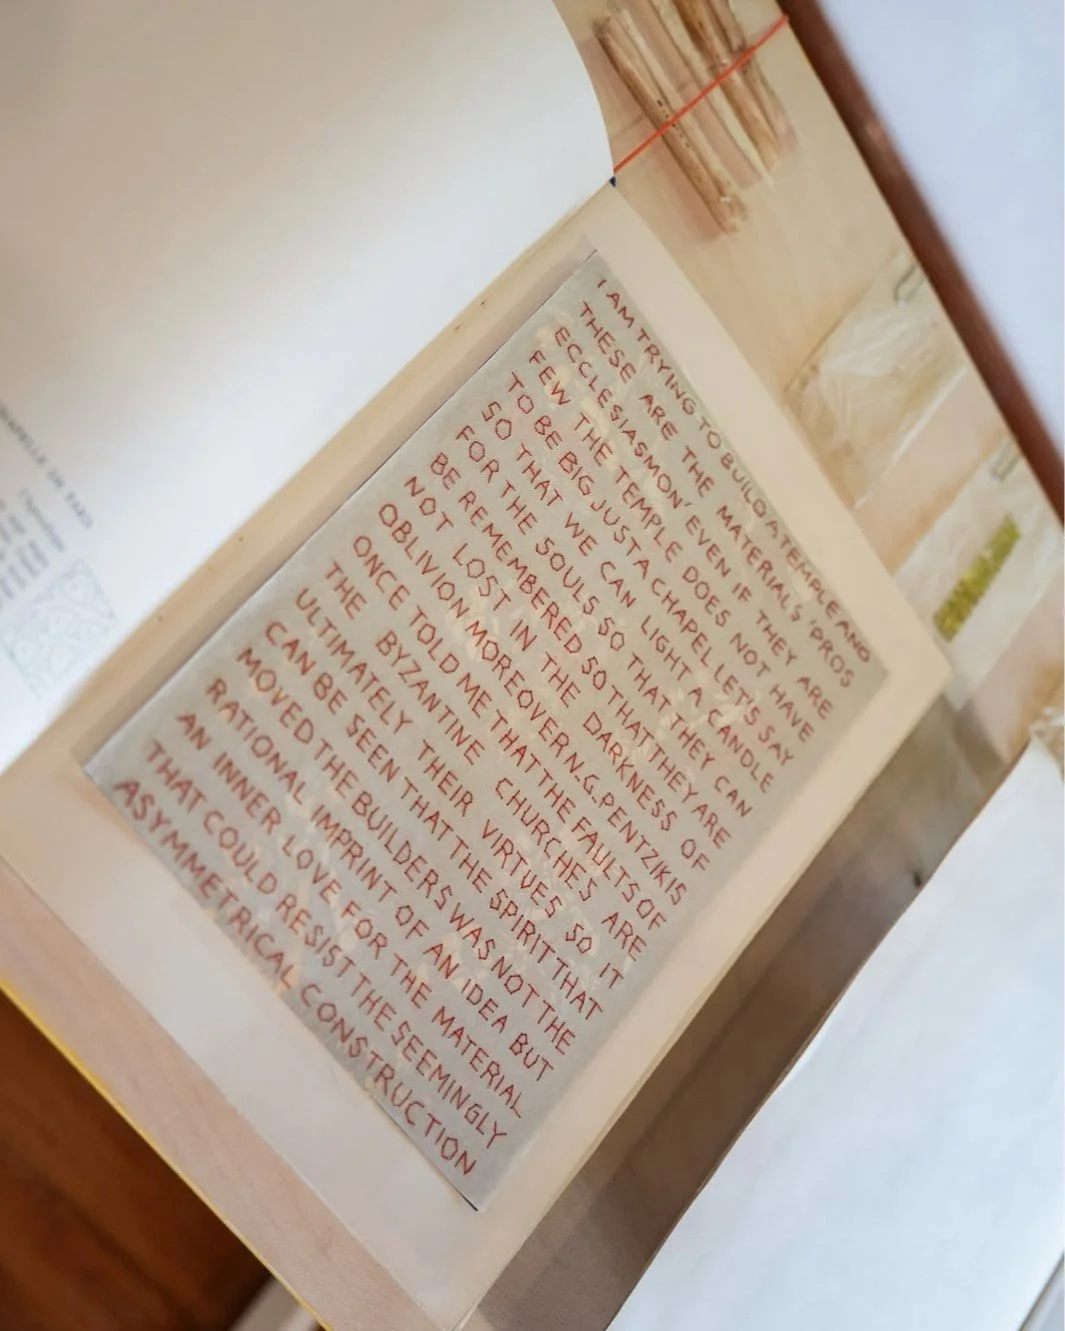 I AM TRYING TO BUILD A TEMPLE AND
THESE ARE THE MATERIALS 'PROS
ECCLESIASMON' EVEN IF THEY ARE
FEW THE TEMPLE DOES NOT HAVE
TO BE BIG JUST A CHAPEL LET'S SAY
SO THAT WE CAN LIGHT A CANDLE
FOR THE SOULS SO THAT THEY CAN
BE REMEMBERED SO THAT THEY ARE
NOT LOST IN THE DARKNESS OF
OBLIVION MOREOVER N.G. PENTZIKIS
ONCE TOLD ME THAT THE FAULTS OF
THE BYZANTINE CHURCHES ARE
ULTIMATELY THEIR VIRTUES SO IT
CAN BE SEEN THAT THE SPIRIT THAT
MOVED THE BUILDERS WAS NOT THE
RATIONAL IMPRINT OF AN IDEA BUT
AN INNER LOVE FOR THE MATERIAL
THAT COULD RESIST THE SEEMINGLY
ASYMMETRICAL CONSTRUCTION